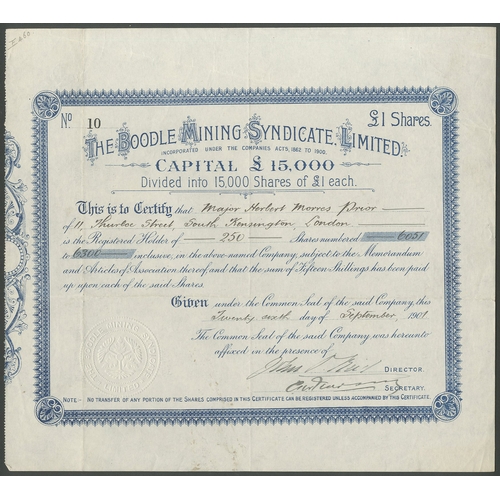 No. 10
£1 Shares.
THE BOODLE MINING SYNDICATE, LIMITED.
INCORPORATED UNDER THE COMPANIES ACTS, 1862 TO 1900.
CAPITAL £15,000
Divided into 15,000 Shares of £1 each.
This is to Certify that Major Herbert Morres Prior
of 11, Thurloe Street, South Kensington, London
is the Registered Holder of 250 Shares numbered 6051
to 6300 inclusive, in the above-named Company, subject to the Memorandum
and Articles of Association thereof, and that the sum of Fifteen Shillings has been paid
up upon each of the said Shares.
Given under the Common Seal of the said Company, this
Twenty sixth day of September, 1901
The Common Seal of the said Company was hereunto
affixed in the presence of
DIRECTOR.
SECRETARY.
NOTE.- NO TRANSFER OF ANY PORTION OF THE SHARES COMPRISED IN THIS CERTIFICATE CAN BE REGISTERED UNLESS ACCOMPANIED BY THIS CERTIFICATE.